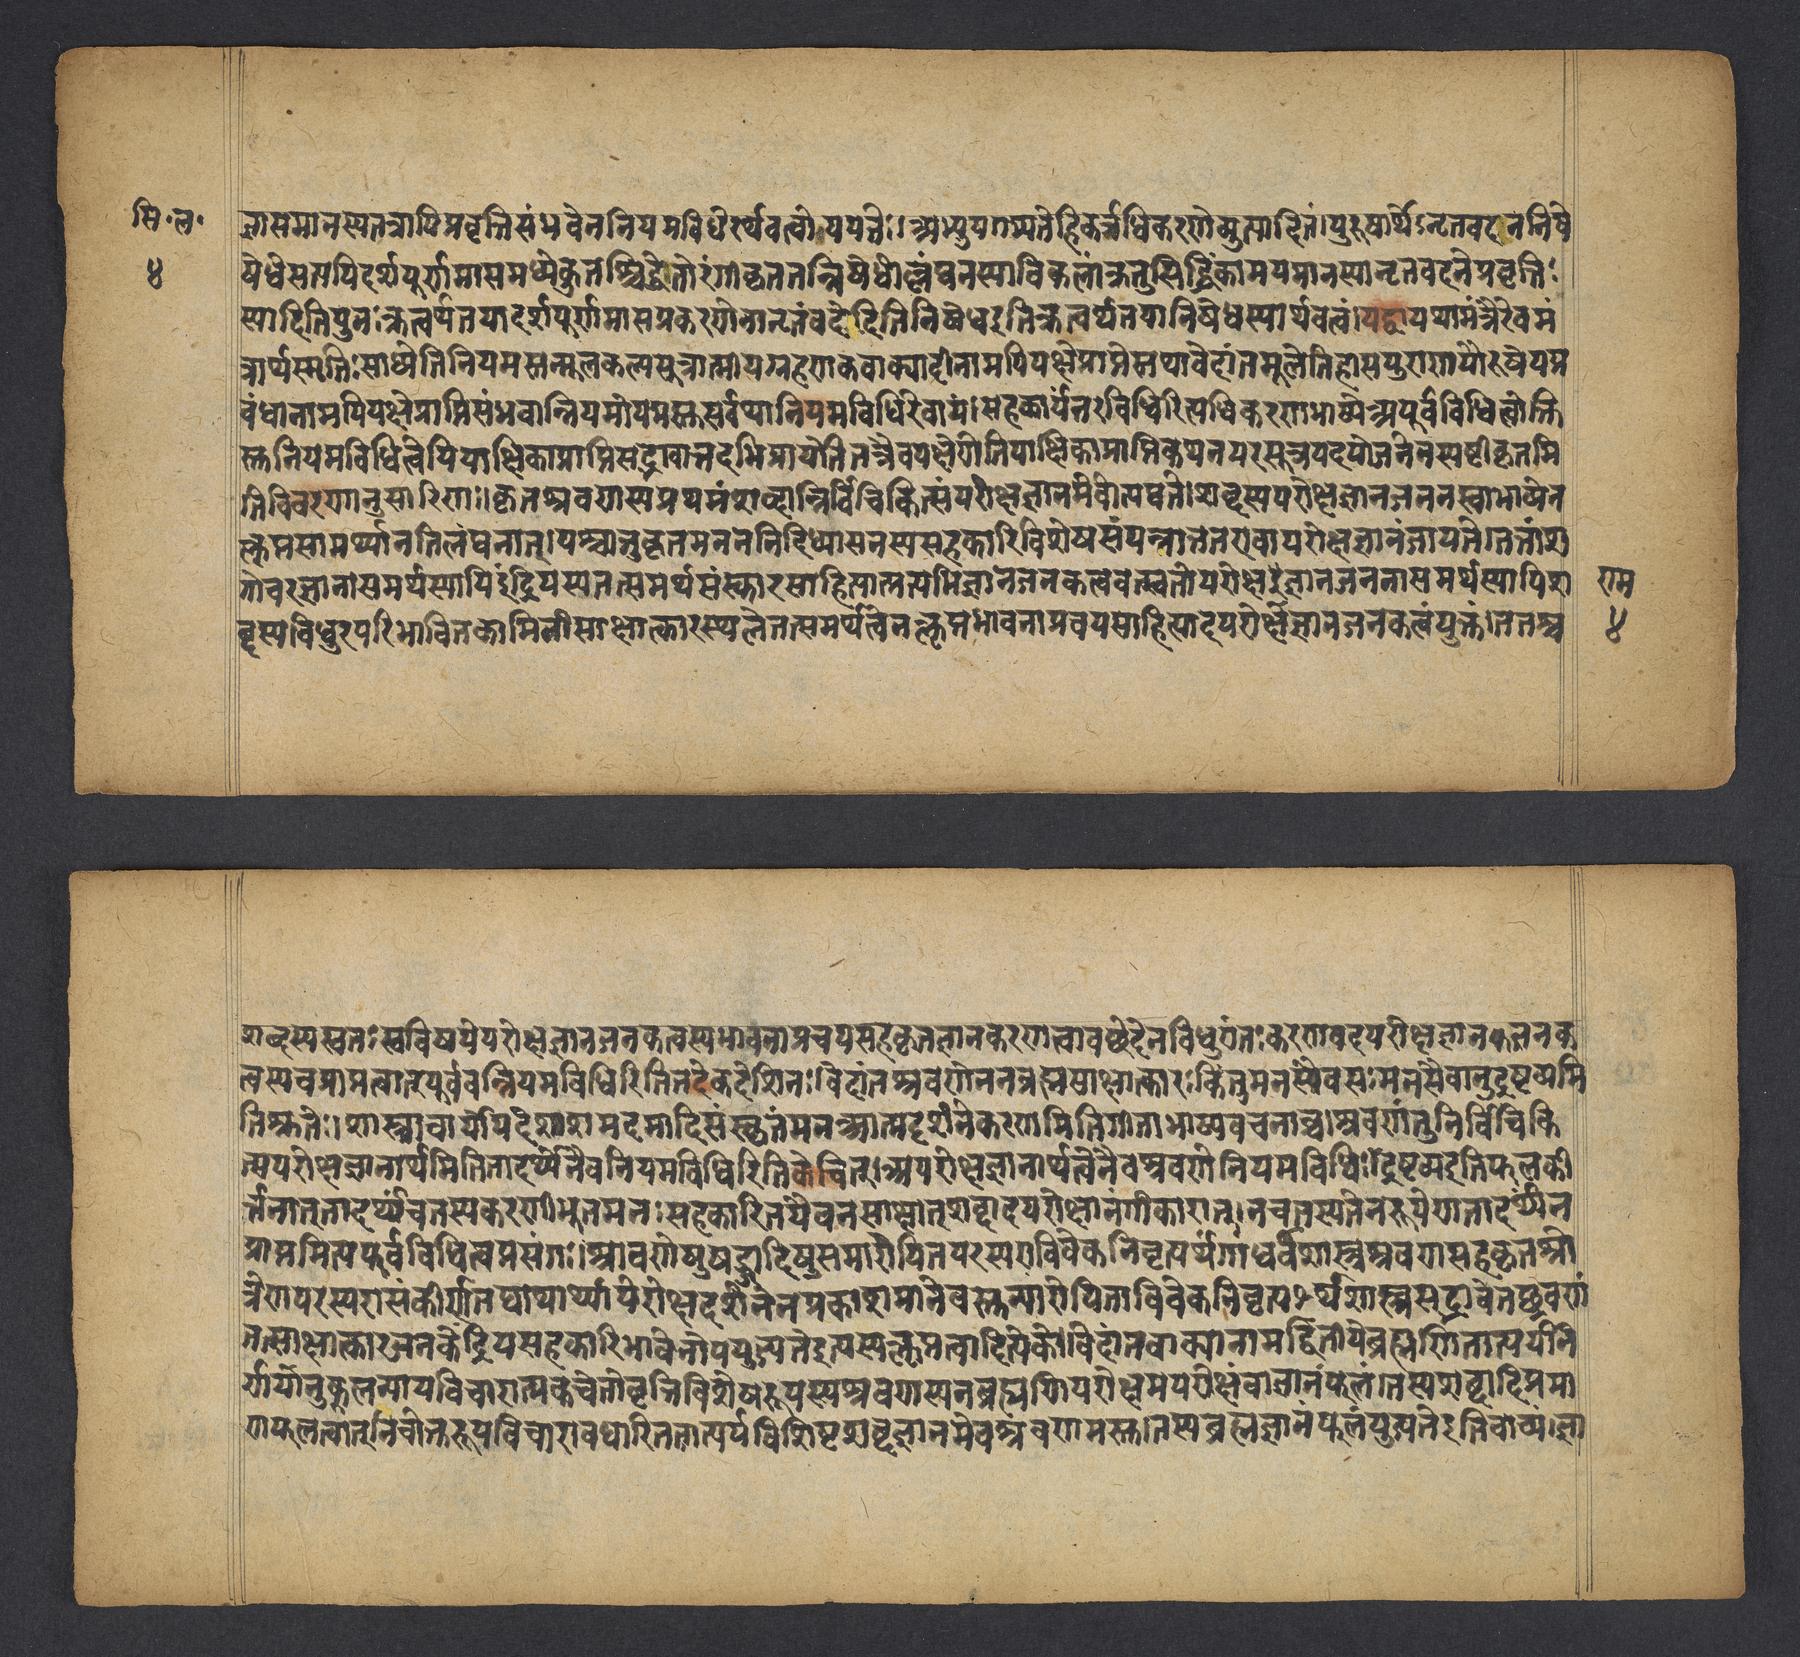 सि॰ ल॰
४
ज्ञासमानस्य तत्रापि प्रवृत्तिसंभवेन नियमविधेरर्थवत्त्वोपपत्तेः। अभ्युपगम्यते हि कर्त्रधिकरणे व्युत्पादितं। पुरुषार्थेऽनृतवदननिषे
षेधे सत्यपि दर्शपूर्णमासमध्ये कुतश्चिद्धेतोरंगीकृततन्निषेधोल्लंघनस्याविकलां क्रतुसिद्धिं कामयमानस्यानृतवदने प्रवृत्तिः
स्यादिति पुनः क्रत्वर्थतया दर्शपूर्णमासप्रकरणे नानृतं वदेदिति निषेध इति क्रत्वर्थतया निषेधस्यार्थवत्वं। यद्वा यथा मंत्रैरेव मं
त्रार्थस्मृतिः साध्येति नियमस्तन्मूलकल्पसूत्रात्मीयग्रहणकवाक्यादीनामपि पक्षे प्राप्तेस्तथा वेदांतमूलेतिहासपुराणपौरुषेयप्र
बंधानामपि पक्षे प्राप्तिसंभवान्नियमोयमस्तु सर्वथा नियमविधिरेवायं। सहकार्यंतरविधिरित्यधिकरणभाष्ये अपूर्वविधित्वोक्ति
स्तु नियमविधित्वेपि पाक्षिकाप्राप्तिसद्भावात्तदभिप्रायेति तत्रैव पक्षेणेति पाक्षिकाप्राप्तिकथनपरसूत्रपदयोजनेन स्पष्टीकृतमि
ति विवरणानुसारिणः। कृतश्रवणस्य प्रथमं शब्दान्निर्विचिकित्सं परोक्षज्ञानमेवोत्पद्यते। शब्दस्य परोक्षज्ञानजननस्वाभाव्येन
क्लृप्तसामर्थ्यानतिलंघनात्। पश्चात्तु कृतमनननिदिध्यासनस्य सहकारिविशेषसंपन्नात्तत एवापरोक्षज्ञानं जायते। तत्तांश
गोचरज्ञानासमर्थस्यापि इंद्रियस्य तत्समर्थसंस्कारसाहित्यात्प्रत्यभिज्ञानजनकत्ववत्स्वतोपरोक्षज्ञानजननासमर्थस्यापि श
ब्दस्य विधुरपरिभावितकामिनीसाक्षात्कारस्थले तत्समर्थत्वेन क्लृप्तभावनाप्रचयसाहित्यादपरोक्षज्ञानजनकत्वं युक्तं। ततश्च
राम
४
शब्दस्य स्वतः स्वविषये परोक्षज्ञानजनकत्वस्य भावनाप्रचयसहकृतज्ञानकरणत्वावच्छेदेन विधुरांतःकरणवदपरोक्षज्ञानजनक
त्वस्य च प्राप्तत्वात् पूर्ववन्नियमविधिरिति तदेकदेशिनः। वेदांतश्रवणेन न ब्रह्मसाक्षात्कारः किंतु मनसैव सः। मनसैवानुद्रष्टव्यमि
ति श्रुतेः। शास्त्राचार्योपदेशशमदमादिसंस्कृतं मन आत्मदर्शने करणमिति गीताभाष्यवचनाच्च। श्रवणं तु निर्विचिकि
त्सपरोक्षज्ञानार्थमिति तादर्थ्येनैव नियमविधिरिति केचित्। अपरोक्षज्ञानार्थत्वेनैव श्रवणे नियमविधिः। द्रष्टव्य इति फलकी
र्त्तनात् तादर्थ्यं च तस्य करणीभूतमनःसहकारितयैव न साक्षात् शब्दादपरोक्षानंगीकारात्। न च तस्य तेन रूपेण तादर्थ्येन
प्राप्तमित्यपूर्वविधित्वप्रसंगः। श्रावणेषु षड्जादिषु समारोपितपरस्पराविवेकनिवृत्त्यर्थगांधर्वशास्त्रश्रवणसहकृतश्रो
त्रेण परस्परासंकीर्णतद्याथार्थ्यापरोक्षदर्शनेन प्रकाशमाने वस्तुन्यारोपिताविवेकनिवृत्त्यर्थशास्त्रसद्भावे तच्छ्रवणं
तत्साक्षात्कारजनकेंद्रियसहकारिभावेनोपयुज्यते इत्यस्य क्लृप्तत्वादित्येके। वेदांतवाक्यानामद्वितीये ब्रह्मणि तात्पर्यनि
र्णयानुकूलन्यायविचारात्मकचेतोवृत्तिविशेषरूपस्य श्रवणस्य न ब्रह्मणि परोक्षमपरोक्षं वा ज्ञानं फलं। तस्य शब्दादिप्रमा
णफलत्वात् न चोक्तरूपविचारावधारिततात्पर्यविशिष्टशब्दज्ञानमेव श्रवणमस्तु। तस्य ब्रह्मज्ञानं फलं युज्यते इति वाच्यं। ज्ञा